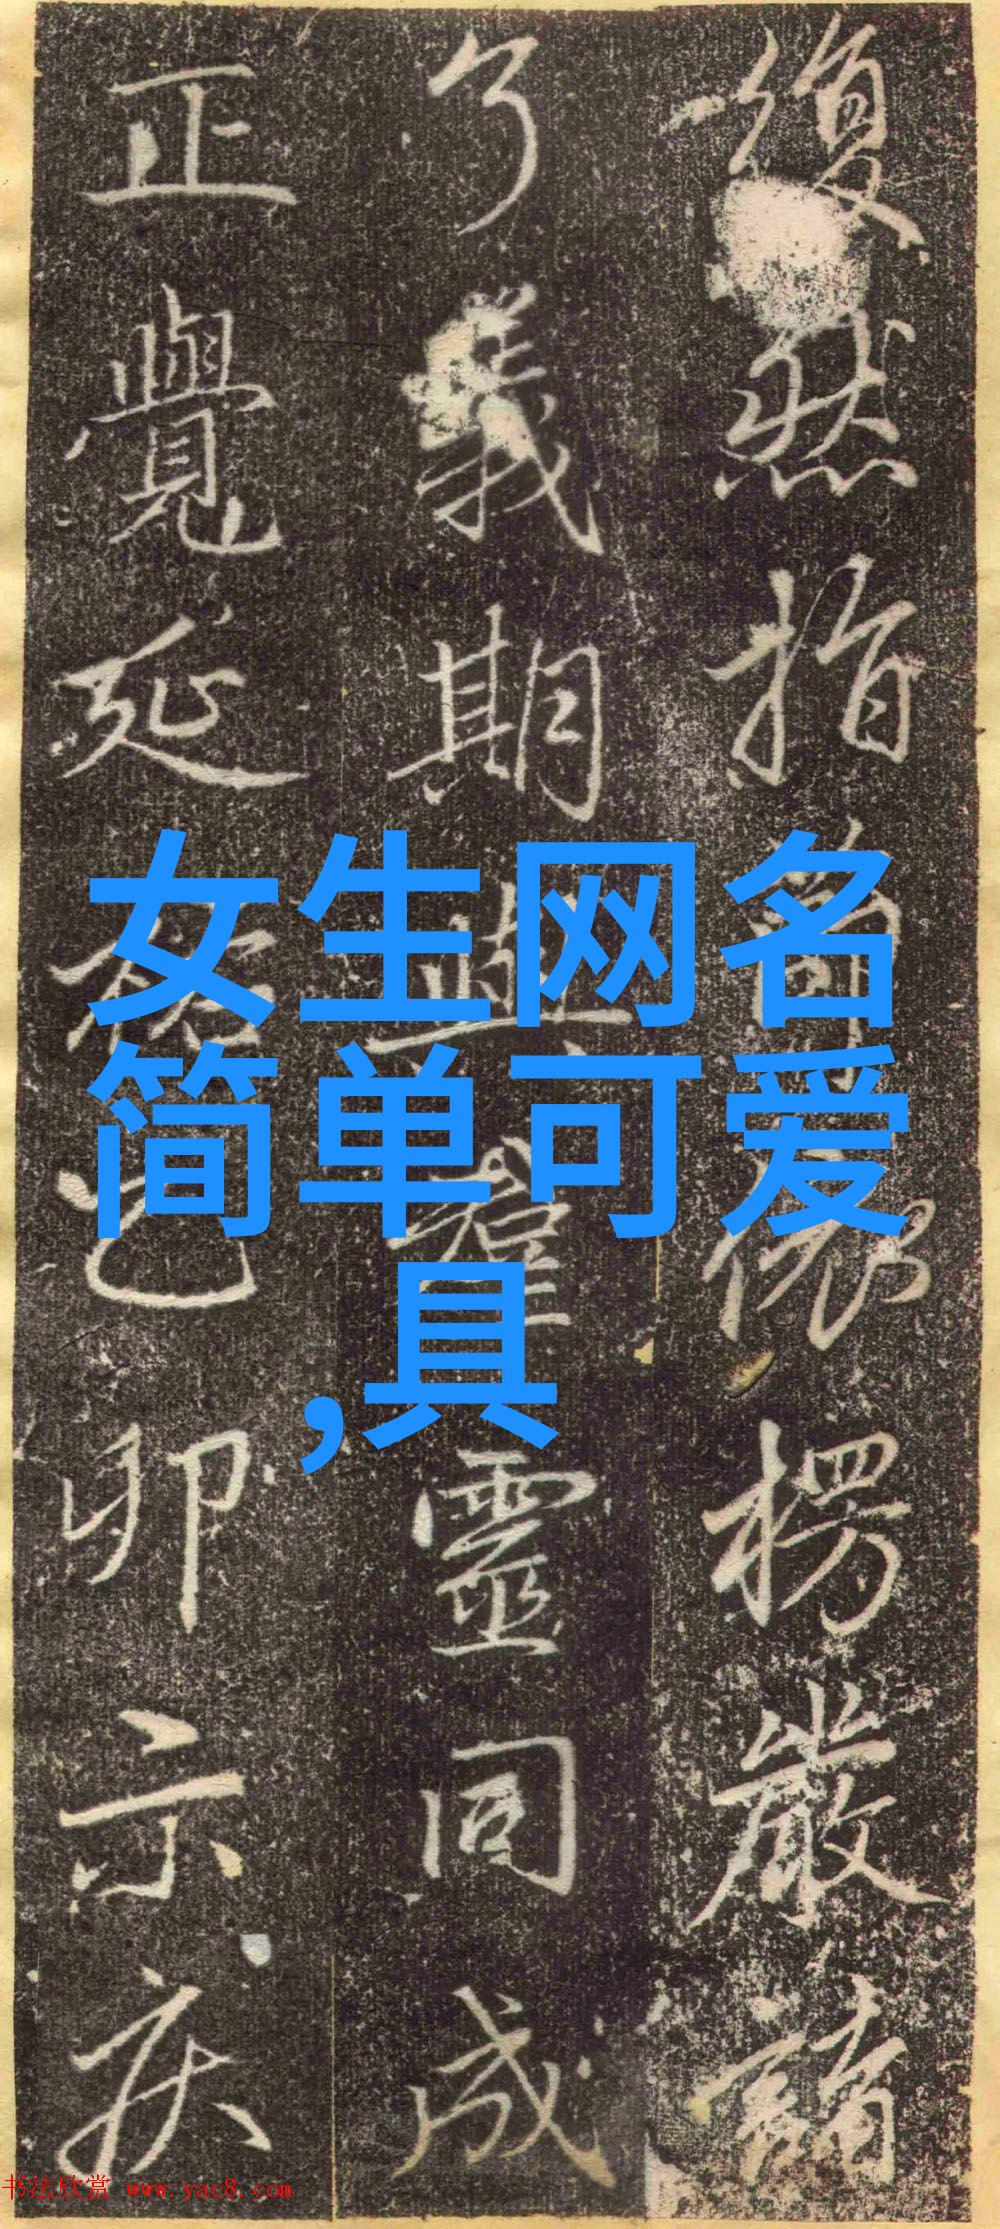 復然指依楞嚴
了義期證靈同成
正覺延祐乙卯示
女生网名
简单可爱
,具
书法欣赏 www.yac8.com